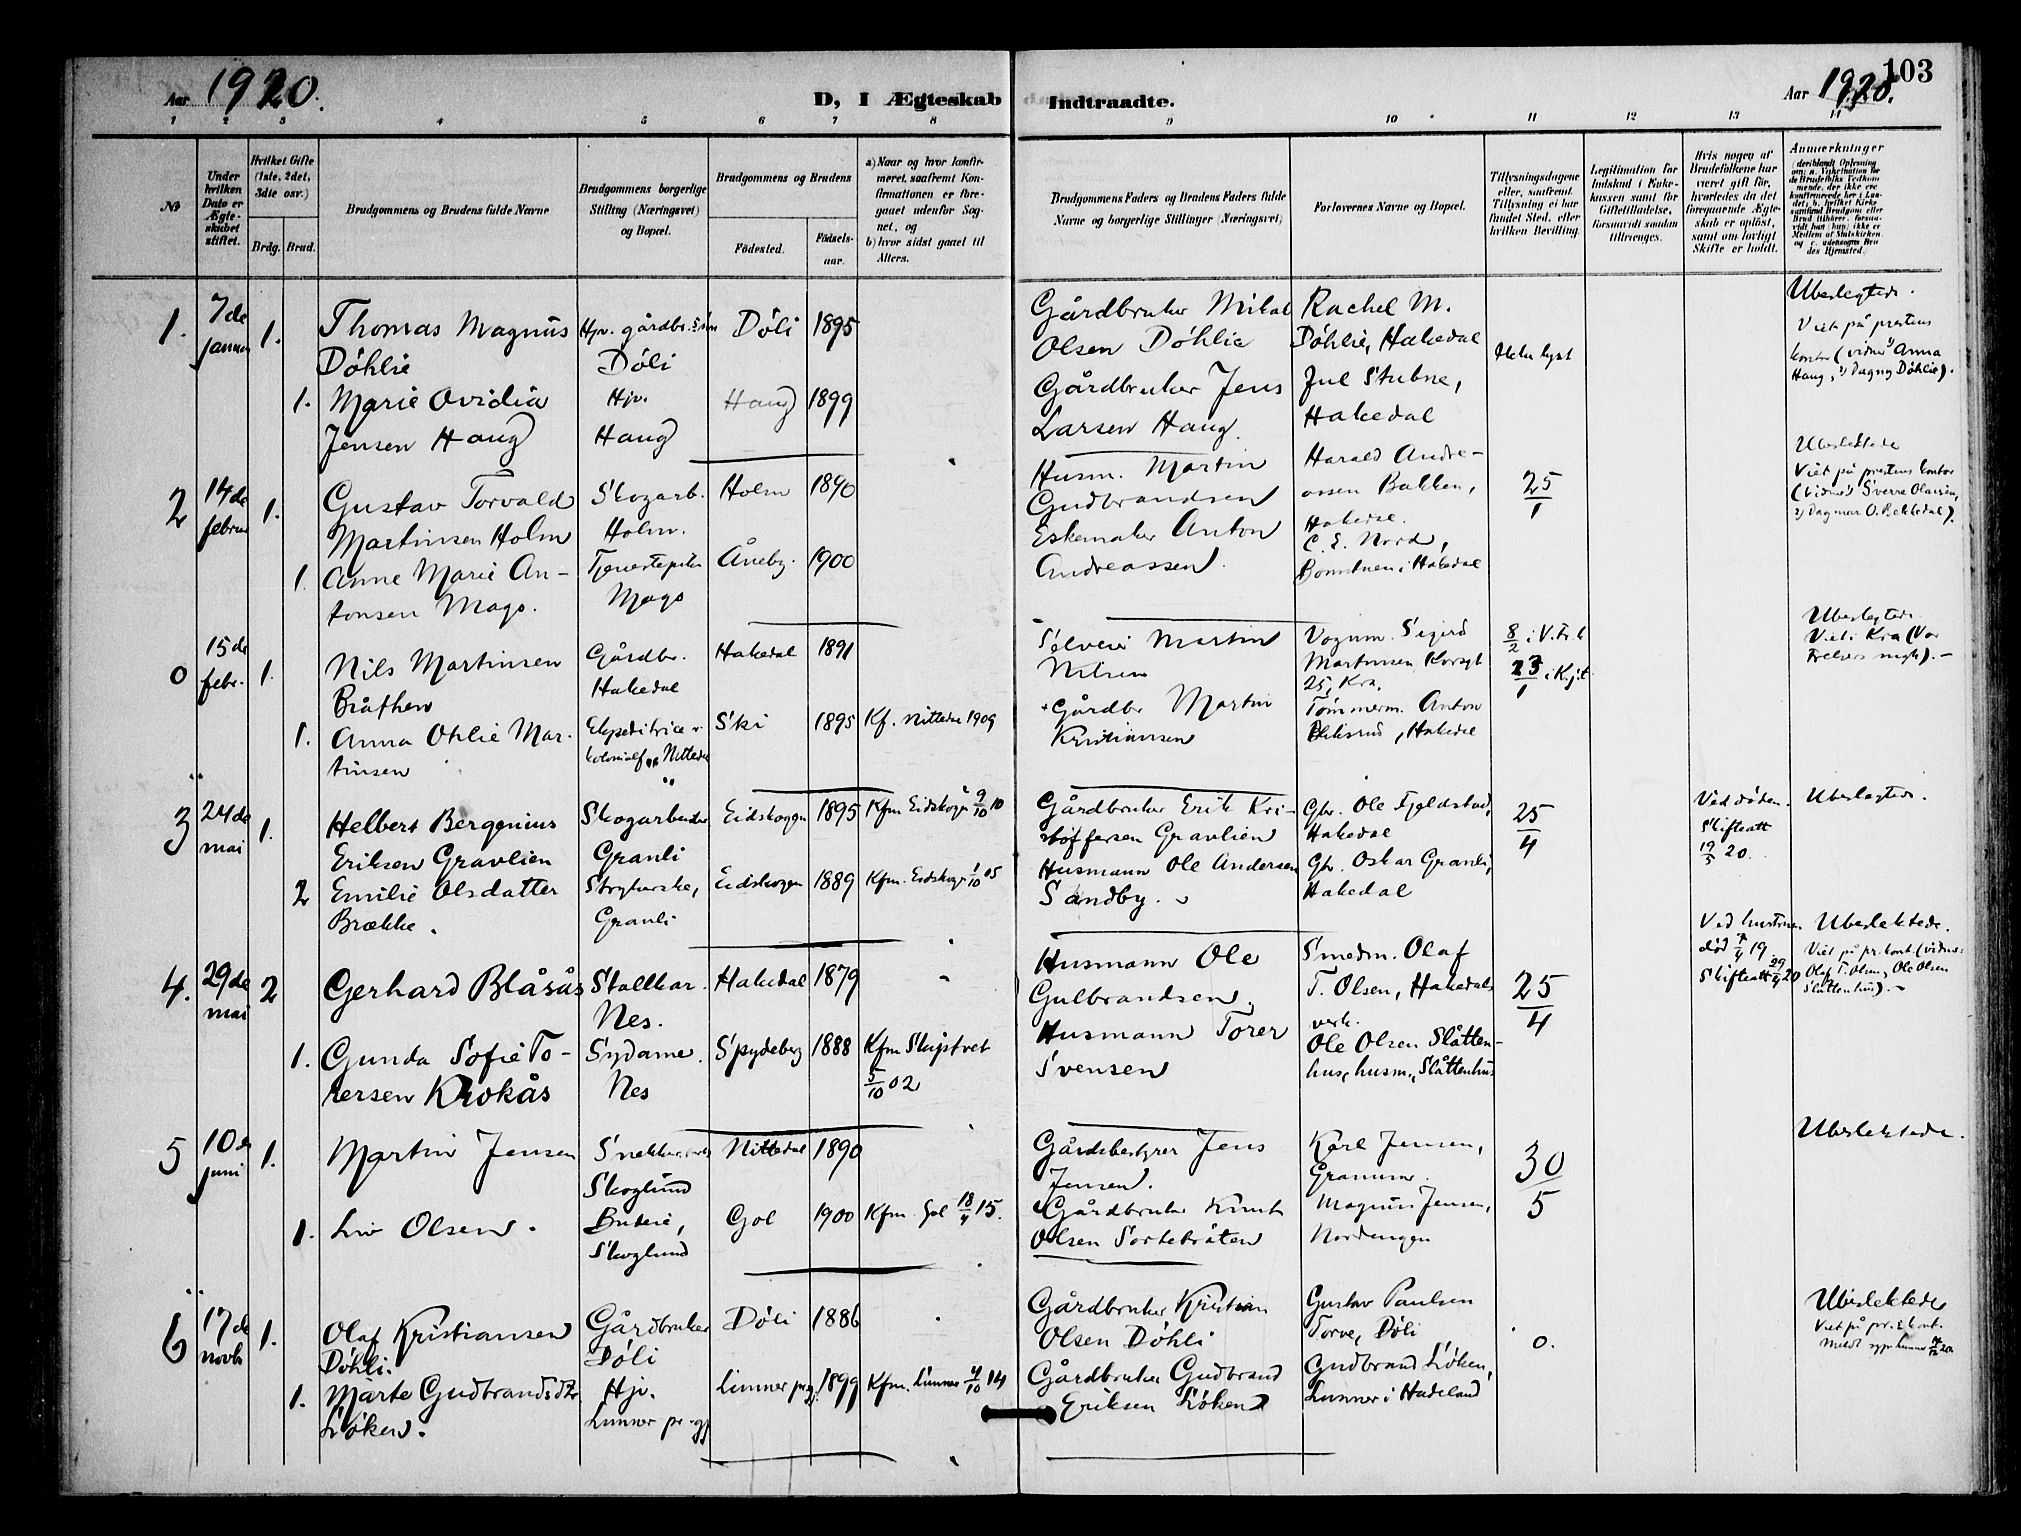 103
Aar 1920.
D, I Ægteskab Indtraadte.
Aar 1920.
1 2 3 4 5 6 7 8 9 10 11 12 13 14
No
Under hvilken Dato er Ægteskabet stiftet.
Hvilket Gifte (1ste, 2det, 3die osv.)
Brdg. Brud.
Brudgommens og Brudens fulde Navne
Brudgommens borgerlige Stilling (Næringsvei) og Bopæl.
Brudgommens og Brudens
Fødested. Fødselsaar.
a) Naar og hvor konfirmeret, saafremt Konfirmationen er foregaaet udenfor Sognet, og
b) hvor sidst gaaet til Alters.
Brudgommens Faders og Brudens Faders fulde Navne og borgerlige Stillinger (Næringsvei)
Forlovernes Navne og Bopæl.
Tillysningsdagene eller, saafremt Tillysning ei har fundet Sted, efter hvilken Bevilling.
Legitimation for Indskud i Enkekassen samt for Giftetilladelse, forsaavidt saadan tiltrænges.
Hvis nogen af Brudefolkene har været gift før, hvorledes da det foregaaende Ægteskab er opløst, samt om lovligt Skifte er holdt.
Anmærkninger
1. 7de januar 1.
Thomas Magnus
Döhlie
Hjv. gårdbr. sön
Döli
Döli 1895
Gårdbruker Mikal
Olsen Döhlie
Rachel M.
Döhlie, Hakedal
Ikke lyst
Ubeslegtede.
Viet på prestens
kontor (vidner 1) Anna
Haug, 2) Dagny Döhlie).
1. Marie Ovidia
Jensen Haug
Hjv.
Haug
Haug 1899
Gårdbruker Jens
Larsen Haug.
Jul Stubne,
Hakedal
2 14de februar 1.
Gustav Torvald
Martinsen Holm
Skogarb.
Holm.
Holm 1890
Husm. Martin
Gudbrandsen
Harald Andreassen Bakken,
Hakedal.
25/1
Ubeslektede
Viet på prestens kontor
(vidner 1) Sverre Olausen,
2) Dagmar O. Bekkedal).
1. Anne Marie Antonsen Mago.
Tjenestepike
Mago
Åneby. 1900
Eskemaker Anton
Andreassen.
C. E. Nord,
i Hakedal
0 15de febr. 1.
Nils Martinsen
Bråthen
Gårdbr.
Hakedal
Hakedal 1891
Selveier Martin
Nilsen
Vognm. Sigurd
Martinsen
25, Kra.
8/2 i V. Fr. k
23/1 i Hak.
Ubeslegtede
Viet i Kra (Vor
Frelsers mgh). -
1. Anna Otilie Martinsen
Ekspeditrice v.
kolonialf. Nittedal
Ski 1895 Kf. Nittedal 1909
Gårdbr Martin
Kristiansen
Tømmerm. Anton
Hakedal
3 24de mai 1.
Helbert Bergenius
Eriksen Gravlien
Skogarbeider
Granli
Eidskogen 1895 Kfm Eidskogen 9/10 10
Gårdbruker Erik Kristoffersen Gravlien
Gbr. Ole Fjeldstad,
Hakedal
25/4
Ved döden.
Skifteatt
19/5 20.
Ubeslegtede.
2 Emilie Olsdatter
Brække.
Strykerske,
Granli
Eidskogen 1889 Kfm. Eidskogen 1/10 05
Husmann Ole Andersen
Sandby.
Gbr. Oskar Granli,
Hakedal
4. 29de mai 2
Gerhard Blåsås
Stallkar.
Nes.
Hakedal 1879
Husmann Ole
Gulbrandsen.
Smedm. Olaf
T. Olsen, Hakedals
verk.
25/4
Ved hustruens
död 19
Skifteatt 29/4 20
Ubeslektede.
Viet på pr. kont. (vidner
Olaf T. Olsen, Ole Olsen
Slåttenhus).
1. Gunda Sofie Torersen Krokås
Sydame.
Nes
Spydeberg 1888 Kfm Skiptvet
5/10 02
Husmann Torer
Svensen
Ole Olsen Slåttenhus, husm., Slåttenhus
5 10de juni 1.
Martin Jensen
Snekker
Skoglund
Nittedal 1890
Gårdsbestyrer Jens
Jensen.
Karl Jensen,
30/5
Ubeslektede.
1. Liv Olsen.
Budeie,
Skoglund
Gol 1900 Kfm. Gol 18/4 15.
Gårdbruker Knut
Olsen Sortebråten
Magnus Jensen,
Nordengen
6 17de novbr 1.
Olaf Kristiansen
Döhli.
Gårdbruker
Döli
Döli 1886
Gårdbruker Kristian
Olsen Döhli
Gustav Paulsen
Torve, Döli
0.
Ubeslektede
Viet på pr.s kont.
1. Marte Gudbrandsdtr.
Löken.
Hjv.
Lunner pr.gj.
Lunner pr.gj. 1899 Kfm. Lunner 4/10 14
Gårdbruker Gudbrand
Eriksen Löken
Gudbrand Löken,
Lunner i Hadeland